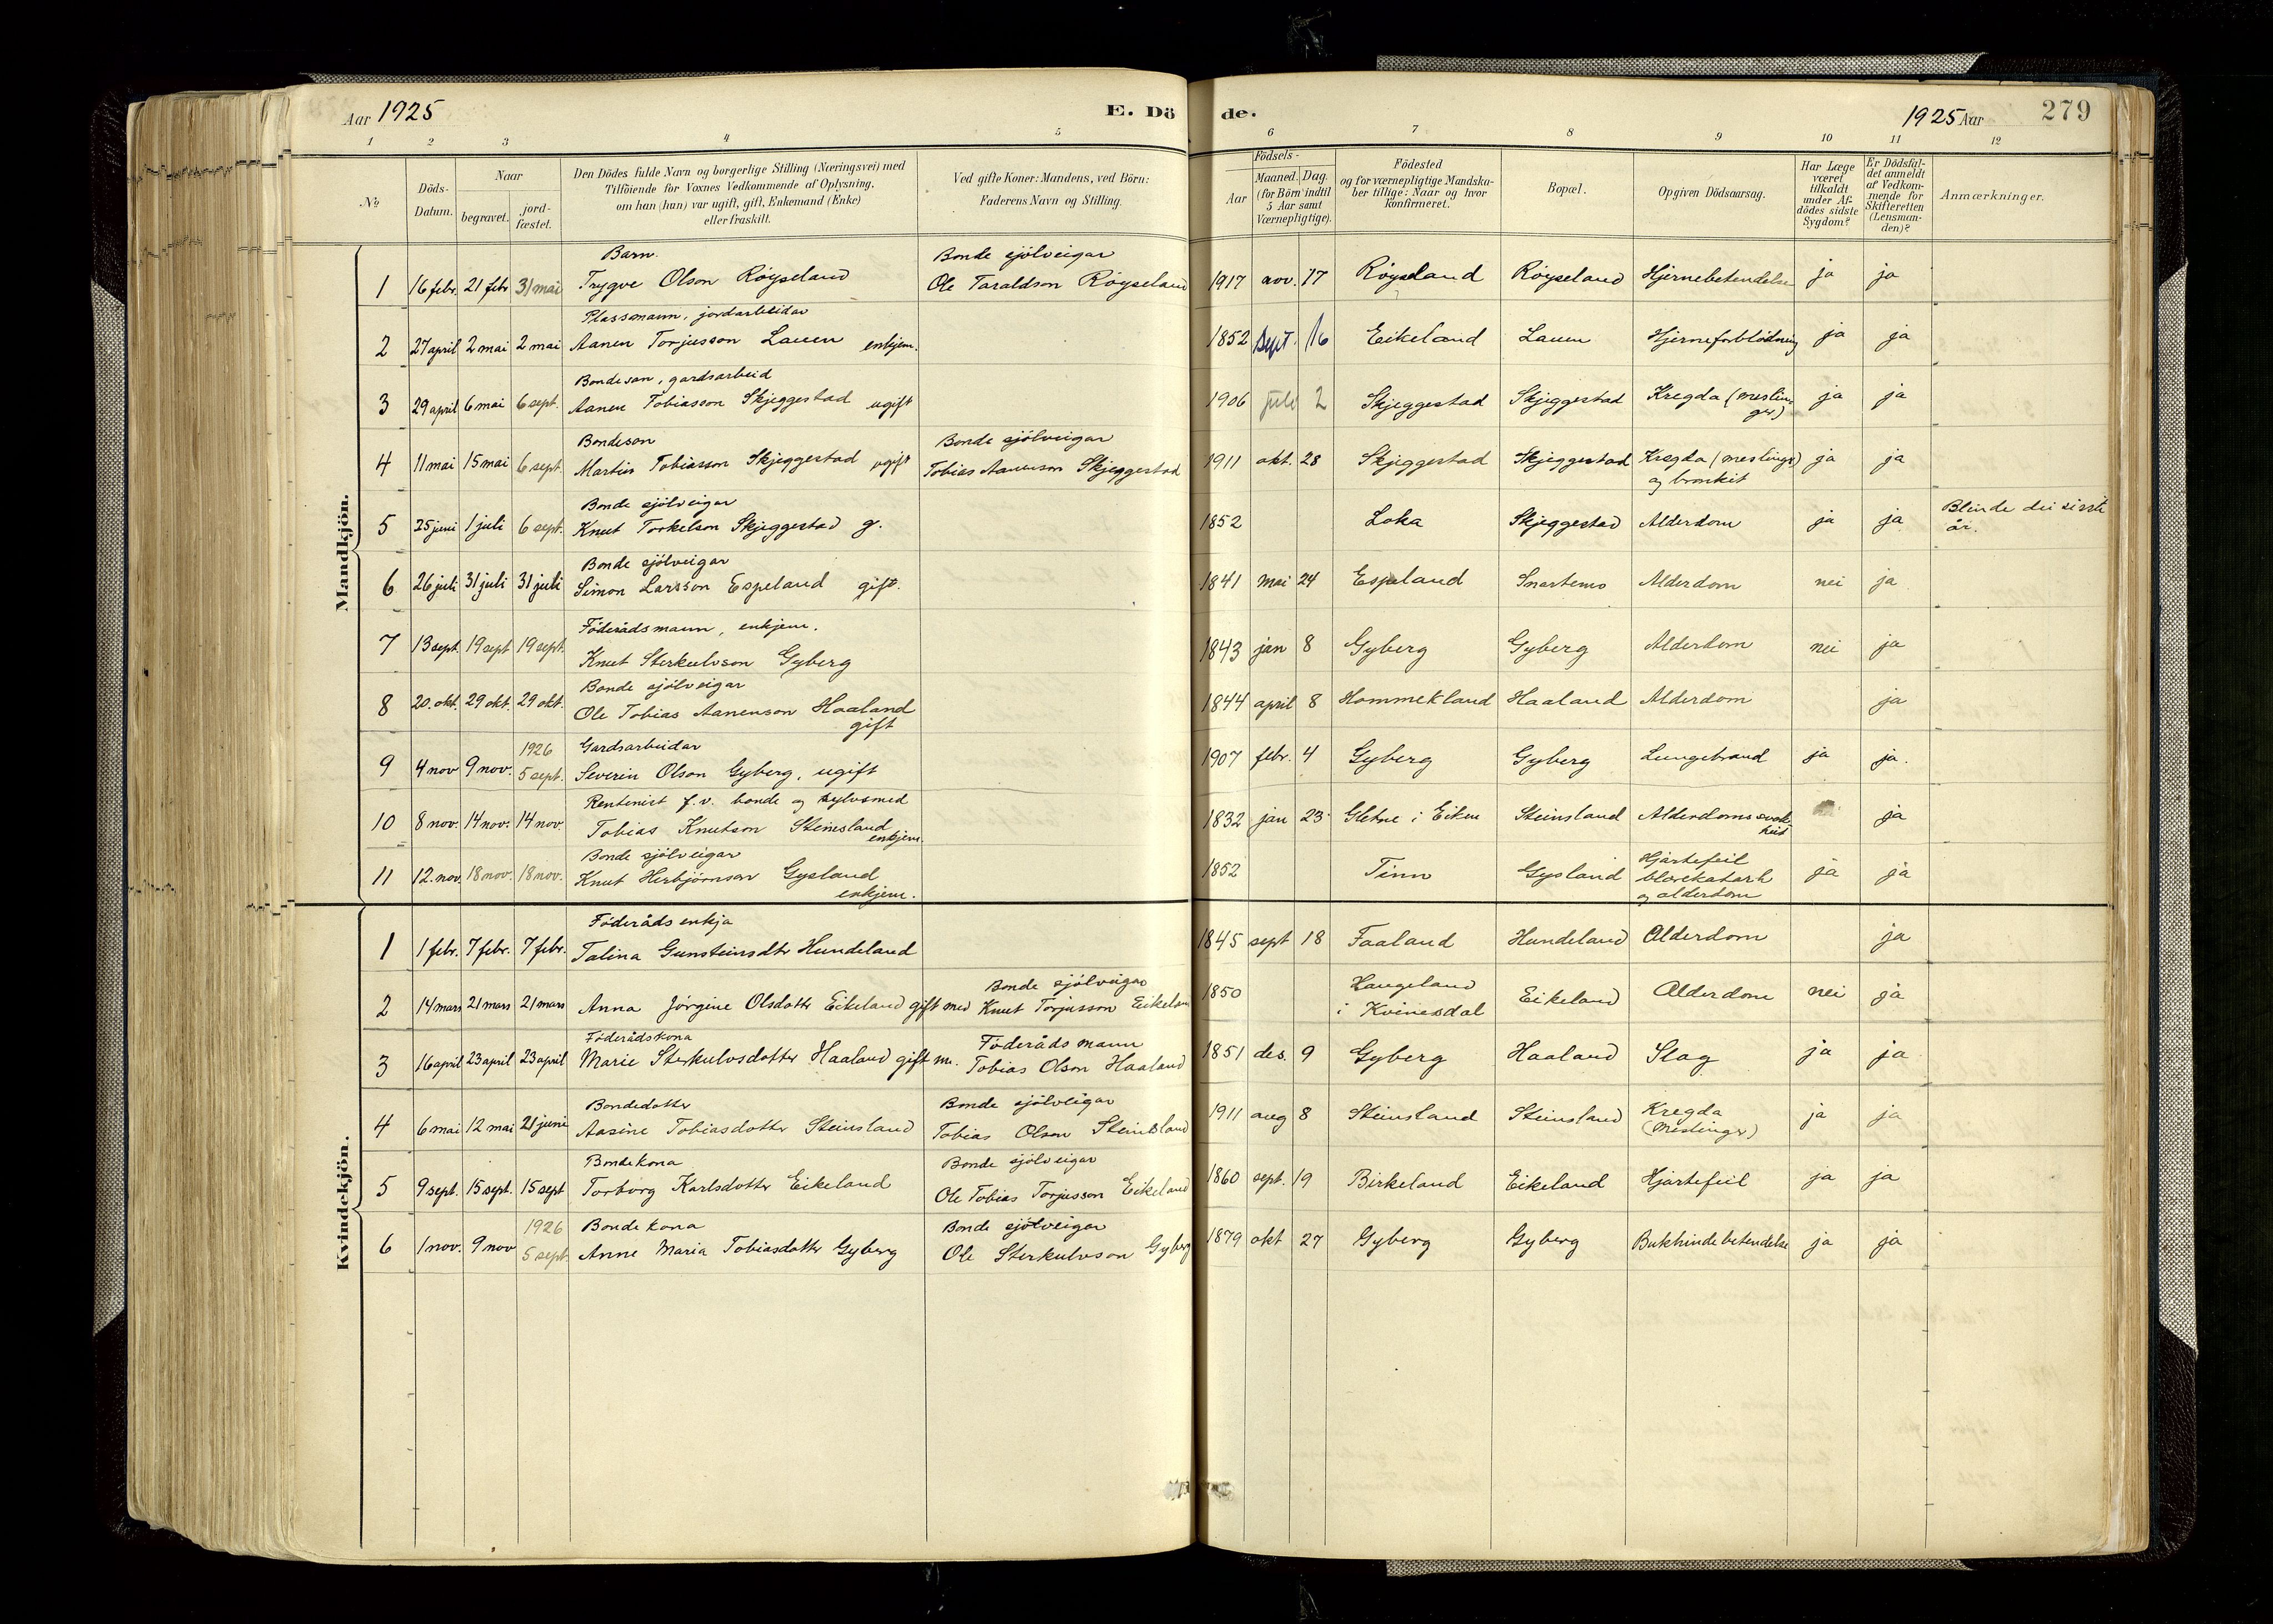 Aar 1925
E. Dö
de.
1925 Aar
279
1 2 3 4 5 6 7 8 9 10 11 12
№
Döds-Datum.
Naar
begravet.
jord-fæstet.
Den Dödes fulde Navn og borgerlige Stilling (Næringsvei) med
Tilföiende for Voxnes Vedkommende af Oplysning,
om han (hun) var ugift, gift, Enkemand (Enke)
eller fraskilt.
Ved gifte Koner: Mandens, ved Börn:
Faderens Navn og Stilling.
Födsels-
Aar
Maaned. Dag.
(for Börn indtil
5 Aar samt
Værnepligtige).
Födested
og for værnepligtige Mandska-
ber tillige: Naar og hvor
konfirmeret.
Bopæl.
Opgiven Dödsaarsag.
Har Læge
været
tilkaldt
under Af-
dödes sidste
Sygdom?
Er Dödsfal-
det anmeldt
af Vedkom-
mende for
Skifteretten
(Lensman-
den)?
Anmærkninger.
Mandkjön.
Barn. Bonde sjölveigar
1 16 febr. 21 febr 31 mai Trygve Olson Röyseland Ole Taraldson Röyseland 1917 nov. 17 Röyseland Röyseland Hjernebetendelse ja ja
Plassmann, jordarbeidar
2 27 april 2 mai 2 mai Aanen Torjusson Lauen enkjem. 1852 Sept. 16 Eikeland Lauen Hjerneforblödning ja ja
Bondeson, gardsarbeid
3 29 april 6 mai 6 sept. Aanen Tobiasson Skjeggestad ugift 1906 juli 2 Skjeggestad Skjeggestad Kregda (meslin- ja ja
ger)
Bondeson Bonde sjölveigar
4 11 mai 15 mai 6 sept. Martin Tobiasson Skjeggestad ugift Tobias Aanenson Skjeggestad 1911 okt. 28 Skjeggestad Skjeggestad Kregda (meslinger) ja ja
og bronkit
Bonde sjölveigar
5 25 juni 1 juli 6 sept. Knut Torkelson Skjeggestad g. 1852 Loka Skjeggestad Alderdom ja ja Blinde dei siste
år.
Bonde sjölveigar
6 26 juli 31 juli 31 juli Simon Larsson Espeland gift. 1841 mai 24 Espeland Snartemo Alderdom nei ja
Föderådsmann, enkjem.
7 13 sept. 19 sept 19 sept. Knut Sterkulvson Gyberg 1843 jan 8 Gyberg Gyberg Alderdom nei ja
Bonde sjölveigar
8 20. okt. 29 okt. 29 okt. Ole Tobias Aanenson Haaland 1844 april 8 Hommekland Haaland Alderdom ja
gift
1926 Gardsarbeidar
9 4 nov 9 nov. 5 sept. Severin Olson Gyberg, ugift 1907 febr. 4 Gyberg Gyberg Lungebrand ja ja.
Rentenist f.v. bonde og sylvsmed
10 8 nov. 14 nov. 14 nov. Tobias Knutson Steinsland 1832 jan 23 Gletne i Eiken Steinsland Alderdomssvak- ja
enkjem. heit
Bonde sjölveigar Hjartefeil
11 12. nov. 18 nov. 18 nov. Knut Herbjörnson Gysland 1852 Tinn Gysland blærekatarh ja ja
enkjem. og alderdom
Kvindekjön.
Föderåds enkja
1 1 febr. 7 febr. 7 febr. Talina Gunsteinsdtr Hundeland 1845 sept 18 Faaland Hundeland Alderdom ja
Bonde sjölveigar Haugeland
2 14 mars 21 mars 21 mars Anna Jörgine Olsdotter Eikeland gift med Knut Torjusson Eikeland 1850 i Kvinesdal Eikeland Alderdom nei ja
Föderådskona Föderåds mann
3 16 april 23 april 23 april Marie Sterkulvsdotter Haaland gift m. Tobias Olson Haaland 1851 des. 9 Gyberg Haaland Slag ja ja
Bondedotter Bonde sjölveigar Kregda
4 6 mai 12 mai 21 juni Aasine Tobiasdotter Steinsland Tobias Olson Steinsland 1911 aug 8 Steinsland Steinsland (Meslinger) ja ja
Bondekona Bonde sjölveigar
5 9 sept. 15 sept. 15 sept Torborg Karlsdotter Eikeland Ole Tobias Torjusson Eikeland 1860 sept. 19 Birkeland Eikeland Hjartefeil ja ja
1926 Bondekona Bonde sjölveigar
6 1 nov. 9 nov 5 sept. Anne Maria Tobiasdotter Gyberg Ole Sterkulvson Gyberg 1879 okt 27 Gyberg Gyberg Bukhindebetendelse ja ja